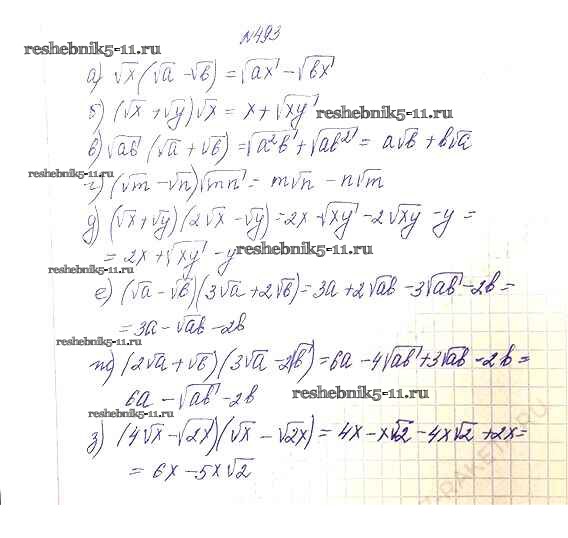 №493
reshebnik5-11.ru
а) √x (√a - √b) = √ax - √bx
б) (√x + √y)√x = x + √xy
reshebnik5-11.ru
в) √ab (√a + √b) = √a²b + √ab² = a√b + b√a
reshebnik5-11.ru
г) (√m - √n)√mn = m√n - n√m
д) (√x + √y)(2√x - √y) = 2x - √xy - 2√xy - y =
= 2x + √xy - y
reshebnik5-11.ru
reshebnik5-11.ru
е) (√a - √b)(3√a + 2√b) = 3a + 2√ab - 3√ab - 2b =
= 3a - √ab - 2b
reshebnik5-11.ru
ж) (2√a + √b)(3√a - 2√b) = 6a - 4√ab + 3√ab - 2b =
6a - √ab - 2b
reshebnik5-11.ru
reshebnik5-11.ru
з) (4√x - √2x)(√x - √2x) = 4x - x√2 - 4x√2 + 2x =
= 6x - 5x√2
reshebnik5-11.ru